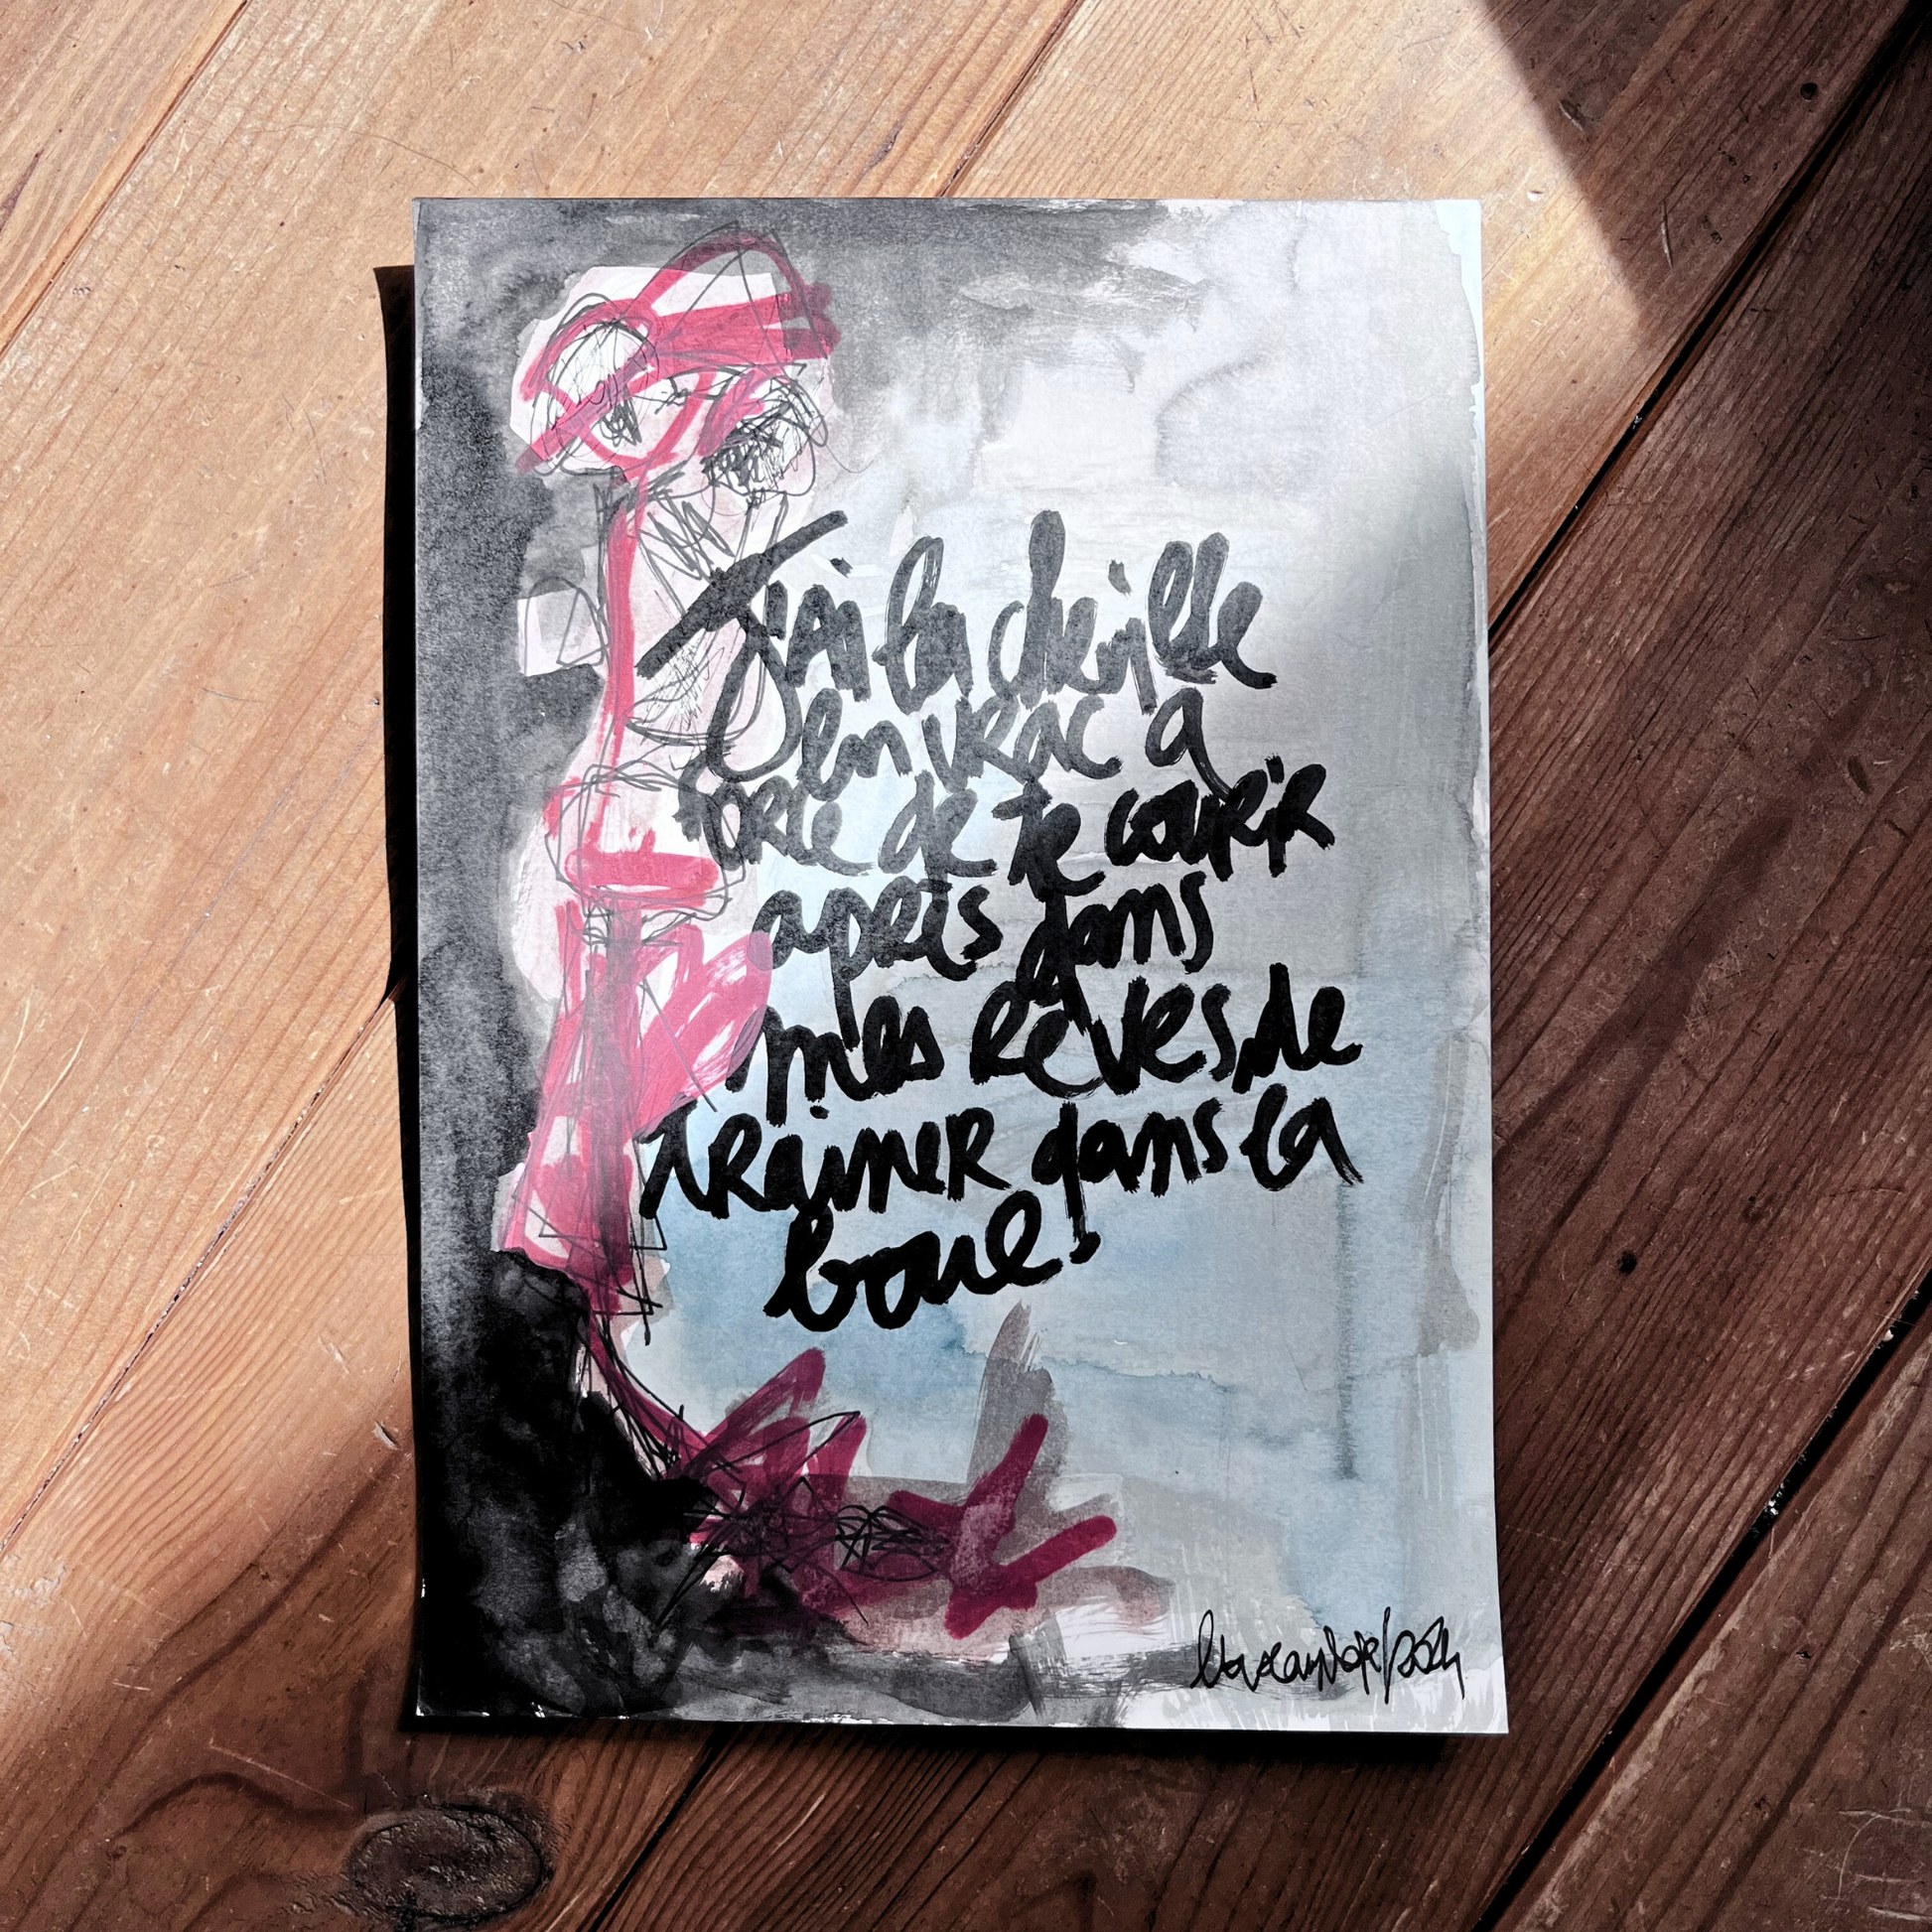 J'ai la cheville
en vrac a
force de te courir
après dans
mes rêves, de
trainer dans la
boue!